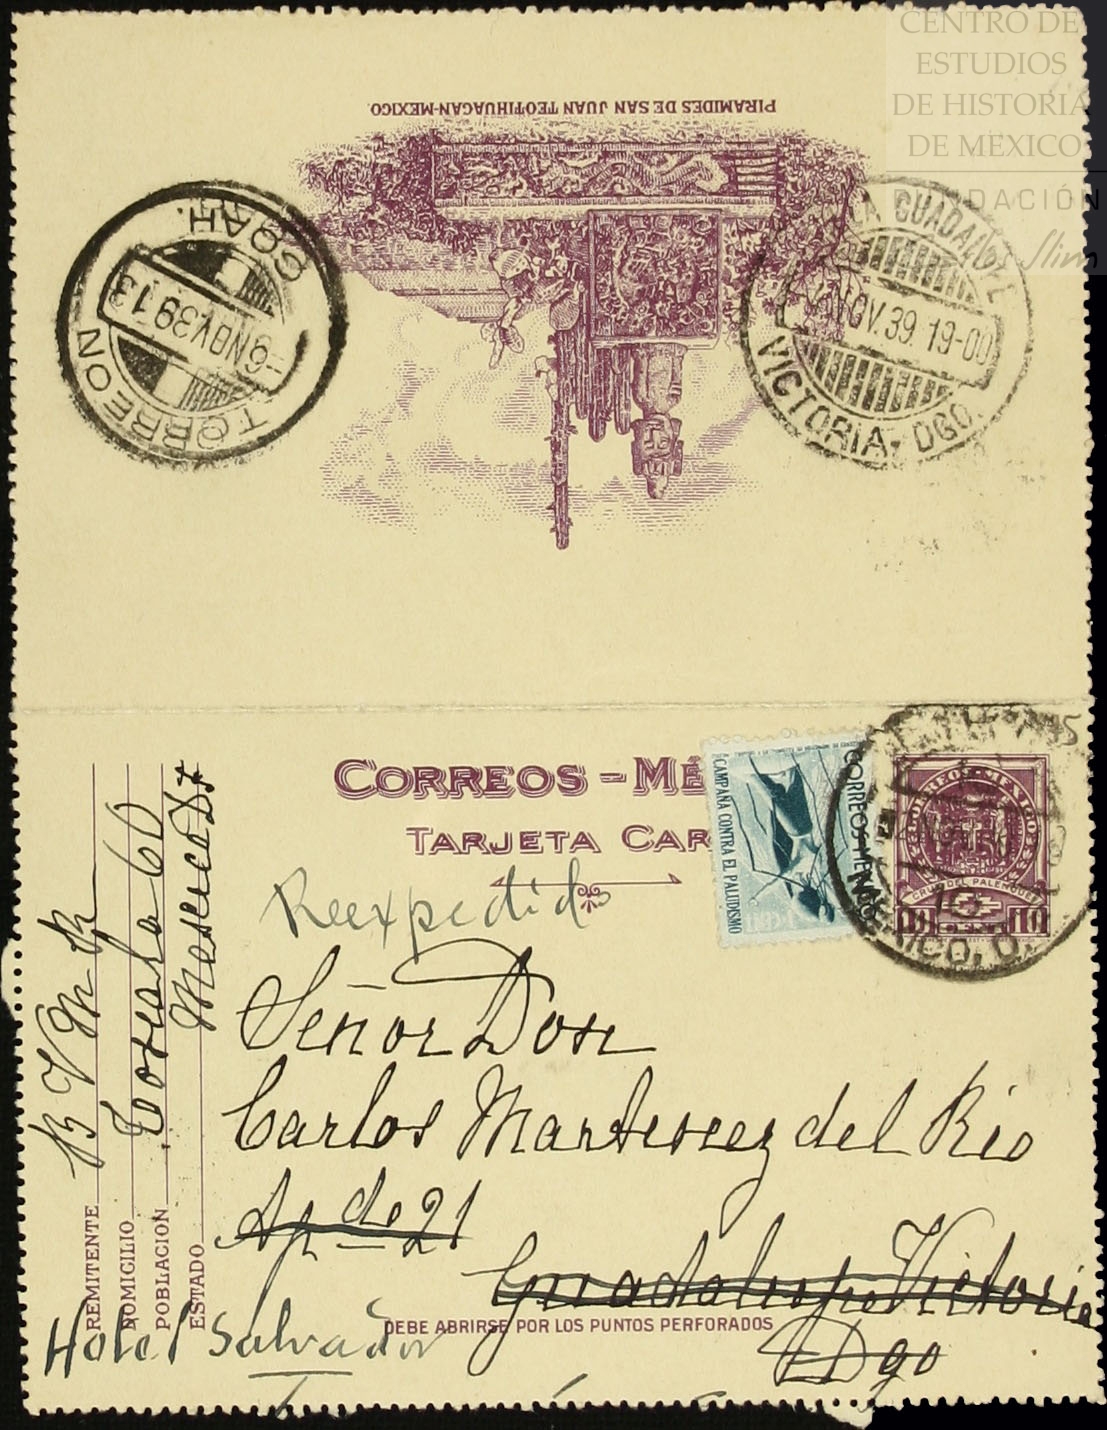 CENTRO DE
ESTUDIOS
DE HISTORIA
DE MEXICO
FUNDACIÓN
Carlos Slim
PIRAMIDES DE SAN JUAN TEOTIHUACAN-MEXICO.
TORREON
-6 NOV.39 13
COAH.
NOV.39. 19-00
VICTORIA, DGO.
CORREOS-MÉ
TARJETA CAR
CORREOS MEXICO
CAMPAÑA CONTRA EL PALUDISMO
CORREOS-MEXICO
CRUZ DEL PALENQUE
10 10
MEXICO, D.
Reexpedido
Señor Don
Carlos Martinez del Rio
Ap. do 21
Guadalupe Victoria
Dgo
REMITENTE
DOMICILIO
POBLACION
ESTADO
60
DEBE ABRIRSE POR LOS PUNTOS PERFORADOS
Hotel Salvador